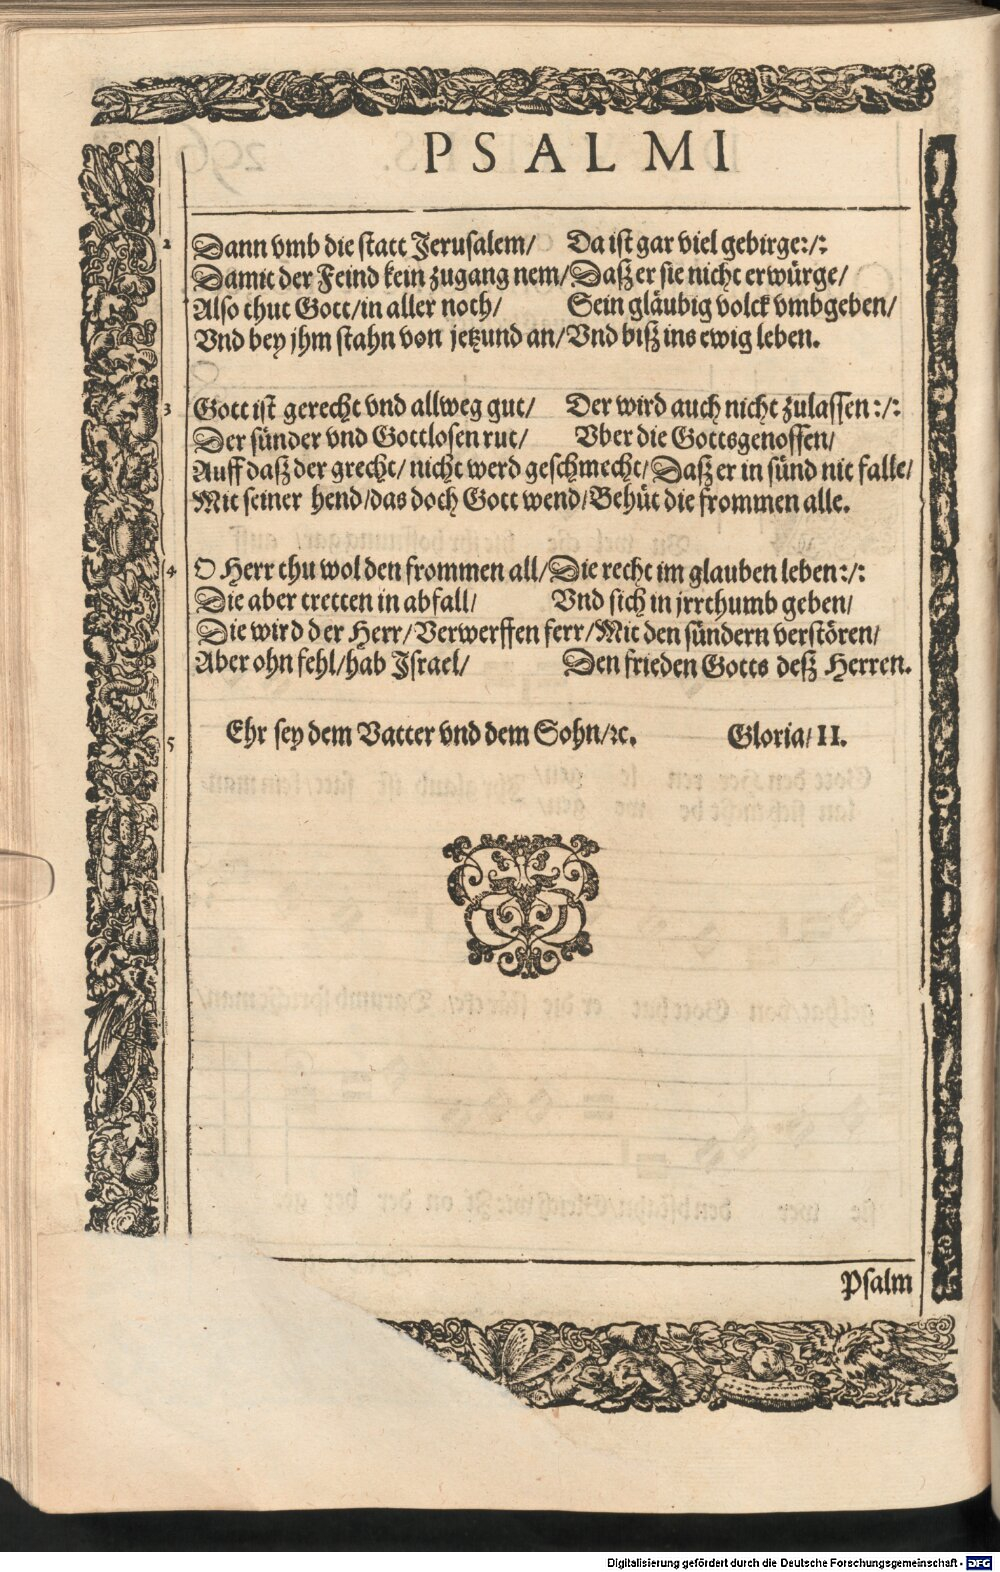 PSALMI
2 Dann vmb die statt Jerusalem/ Da ist gar viel gebirge:/:
Damit der Feind kein zugang nem/ Daß er sie nicht erwürge/
Also thut Gott/ in aller noth/ Sein gläubig volck vmbgeben/
Vnd bey jhm stahn von jetzund an/ Vnd biß ins ewig leben.
3 Gott ist gerecht vnd allweg gut/ Der wird auch nicht zulassen:/:
Der sünder vnd Gottlosen rut/ Vber die Gottsgenossen/
Auff daß der grecht/ nicht werd geschmecht/ Daß er in sünd nit falle/
Mit seiner hend/ das doch Gott wend/ Behüt die frommen alle.
4 O Herr thu wol den frommen all/ Die recht im glauben leben:/:
Die aber tretten in abfall/ Vnd sich in jrrthumb geben/
Die wird der Herr/ Verwerffen ferr/ Mit den sündern verstören/
Aber ohn fehl/ hab Israel/ Den frieden Gotts deß Herren.
5 Ehr sey dem Vatter vnd dem Sohn/ ꝛc. Gloria/ II.
Psalm
Digitalisierung gefördert durch die Deutsche Forschungsgemeinschaft - DFG